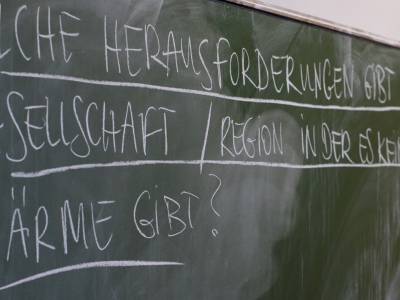 LCHE HERAUSFORDERUNGEN GIBT
SELLSCHAFT / REGION IN DER ES KEIN
ÄRME GIBT?